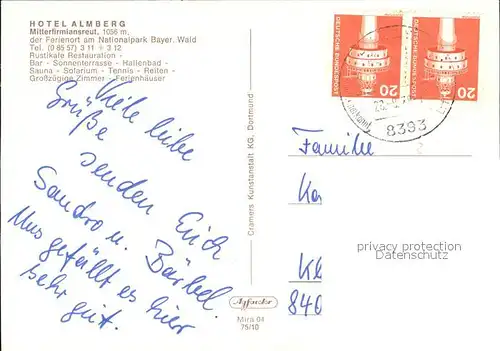 HOTEL ALMBERG
Mitterfirmiansreut, 1056 m,
der Ferienort am Nationalpark Bayer. Wald
Tel. (0 85 57) 3 11 + 3 12
Rustikale Restauration -
Bar - Sonnenterrasse - Hallenbad -
Sauna - Solarium - Tennis - Reiten -
Großzügige Zimmer - Ferienhäuser
Viele liebe
Grüße
senden Euch
Sandro u. Bärbel.
Uns gefällt es hier
sehr gut.
Cramers Kunstanstalt KG, Dortmund
Mira 04
75/10
DEUTSCHE BUNDESPOST
20
DEUTSCHE BUNDESPOST
20
8393
Familie
Ka
Kl
846
privacy protection
VILLAGE ANTIQUES